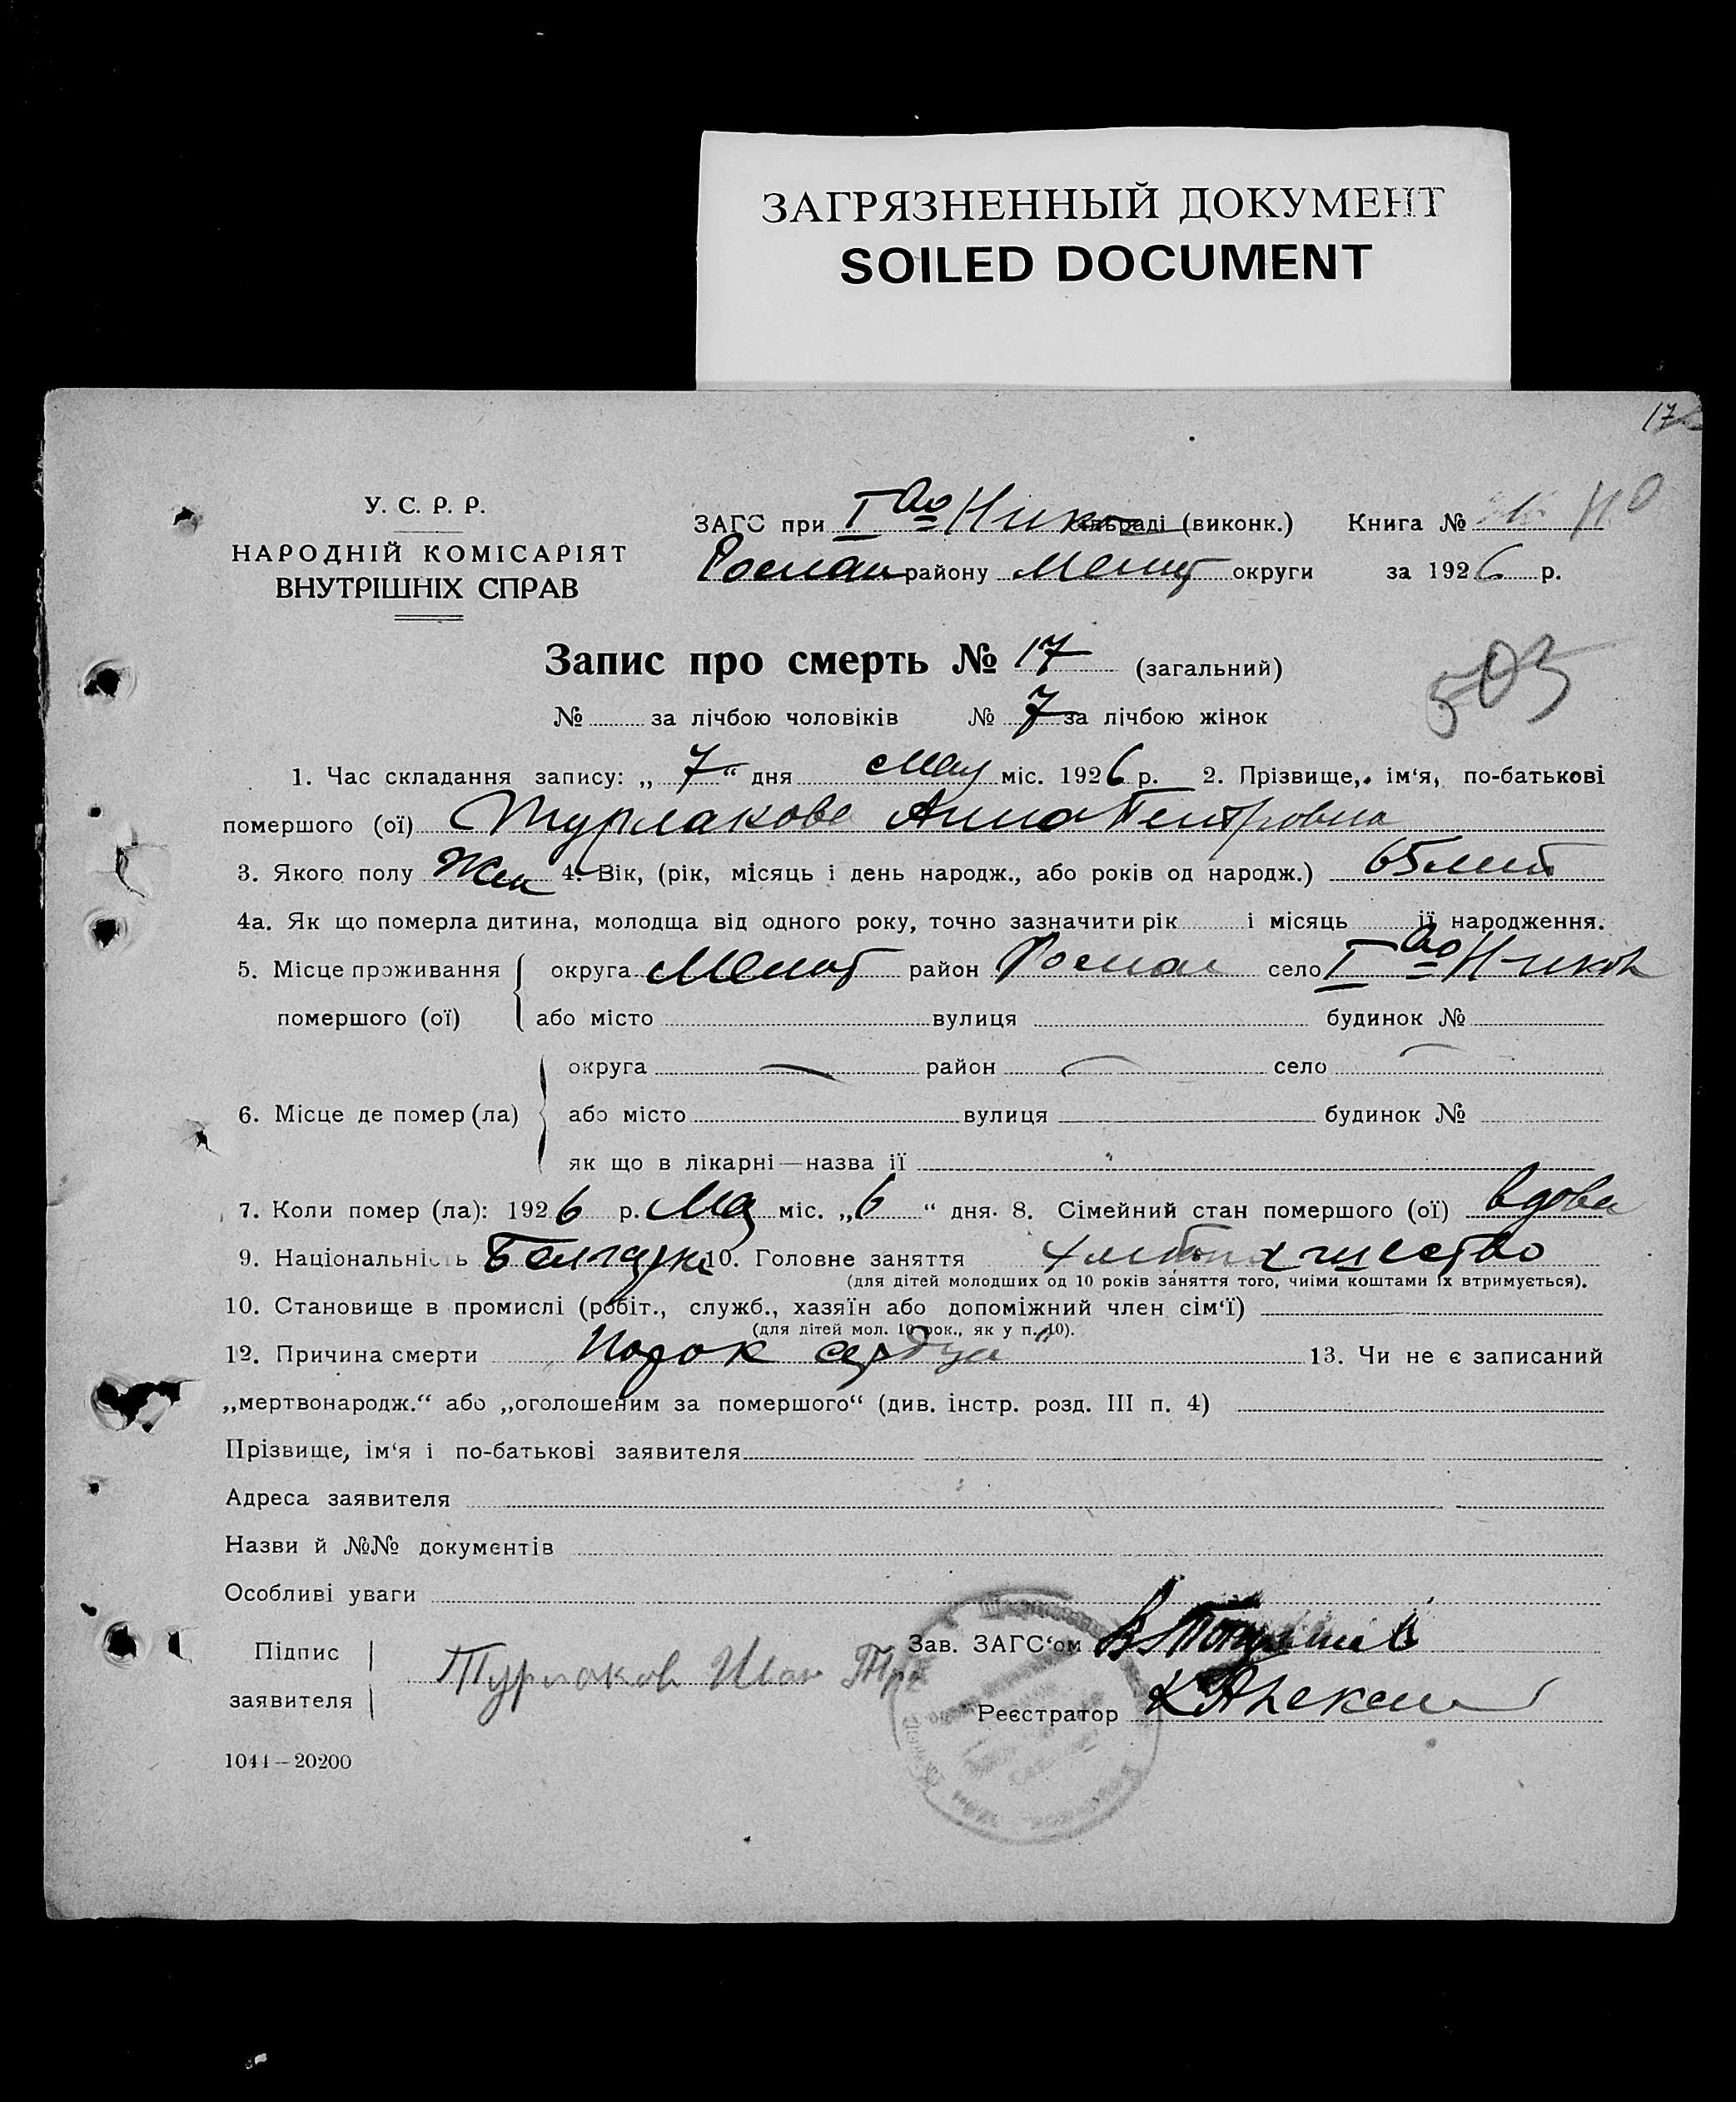 ЗАГРЯЗНЕННЫЙ ДОКУМЕНТ
SOILED DOCUMENT
17
У. С. Р. Р.
НАРОДНІЙ КОМІСАРІЯТ
ВНУТРІШНІХ СПРАВ
ЗАГС при I Ао Нико сільраді (виконк.) Книга №
району Мелит округи за 1926 р.
Запис про смерть № 17 (загальний)
503
№ за лічбою чоловіків № 7 за лічбою жінок
1. Час складання запису: „ 7 “ дня Мая міс. 1926 р. 2. Прізвище, ім‘я, по-батькові
помершого (ої) Турлакова Анна Петровна
3. Якого полу Жен 4. Вік, (рік, місяць і день народж., або років од народж.) 65 лет
4а. Як що померла дитина, молодща від одного року, точно зазначити рік і місяць її народження.
5. Місце проживання округа Мелит район село I Ао Никол
помершого (ої) або місто вулиця будинок №
округа — район — село —
6. Місце де помер (ла) або місто вулиця будинок №
як що в лікарні—назва її
7. Коли помер (ла): 1926 р. Мая міс. „ 6 “ дня. 8. Сімейний стан помершого (ої) вдова
9. Національність Болгарка 10. Головне заняття хлебопашество
(для дітей молодших од 10 років заняття того, чиїми коштами їх втримується).
10. Становище в промислі (робіт., служб., хазяїн або допоміжний член сім‘ї)
(для дітей мол. 10 рок., як у п. 10).
12. Причина смерти Порок сердца 13. Чи не є записаний
„мертвонародж.“ або „оголошеним за помершого“ (див. інстр. розд. III п. 4)
Прізвище, ім‘я і по-батькові заявителя
Адреса заявителя
Назви й №№ документів
Особливі уваги
Підпис
заявителя
Турлаков Иван
Зав. ЗАГС‘ом
Реєстратор
1044—20200